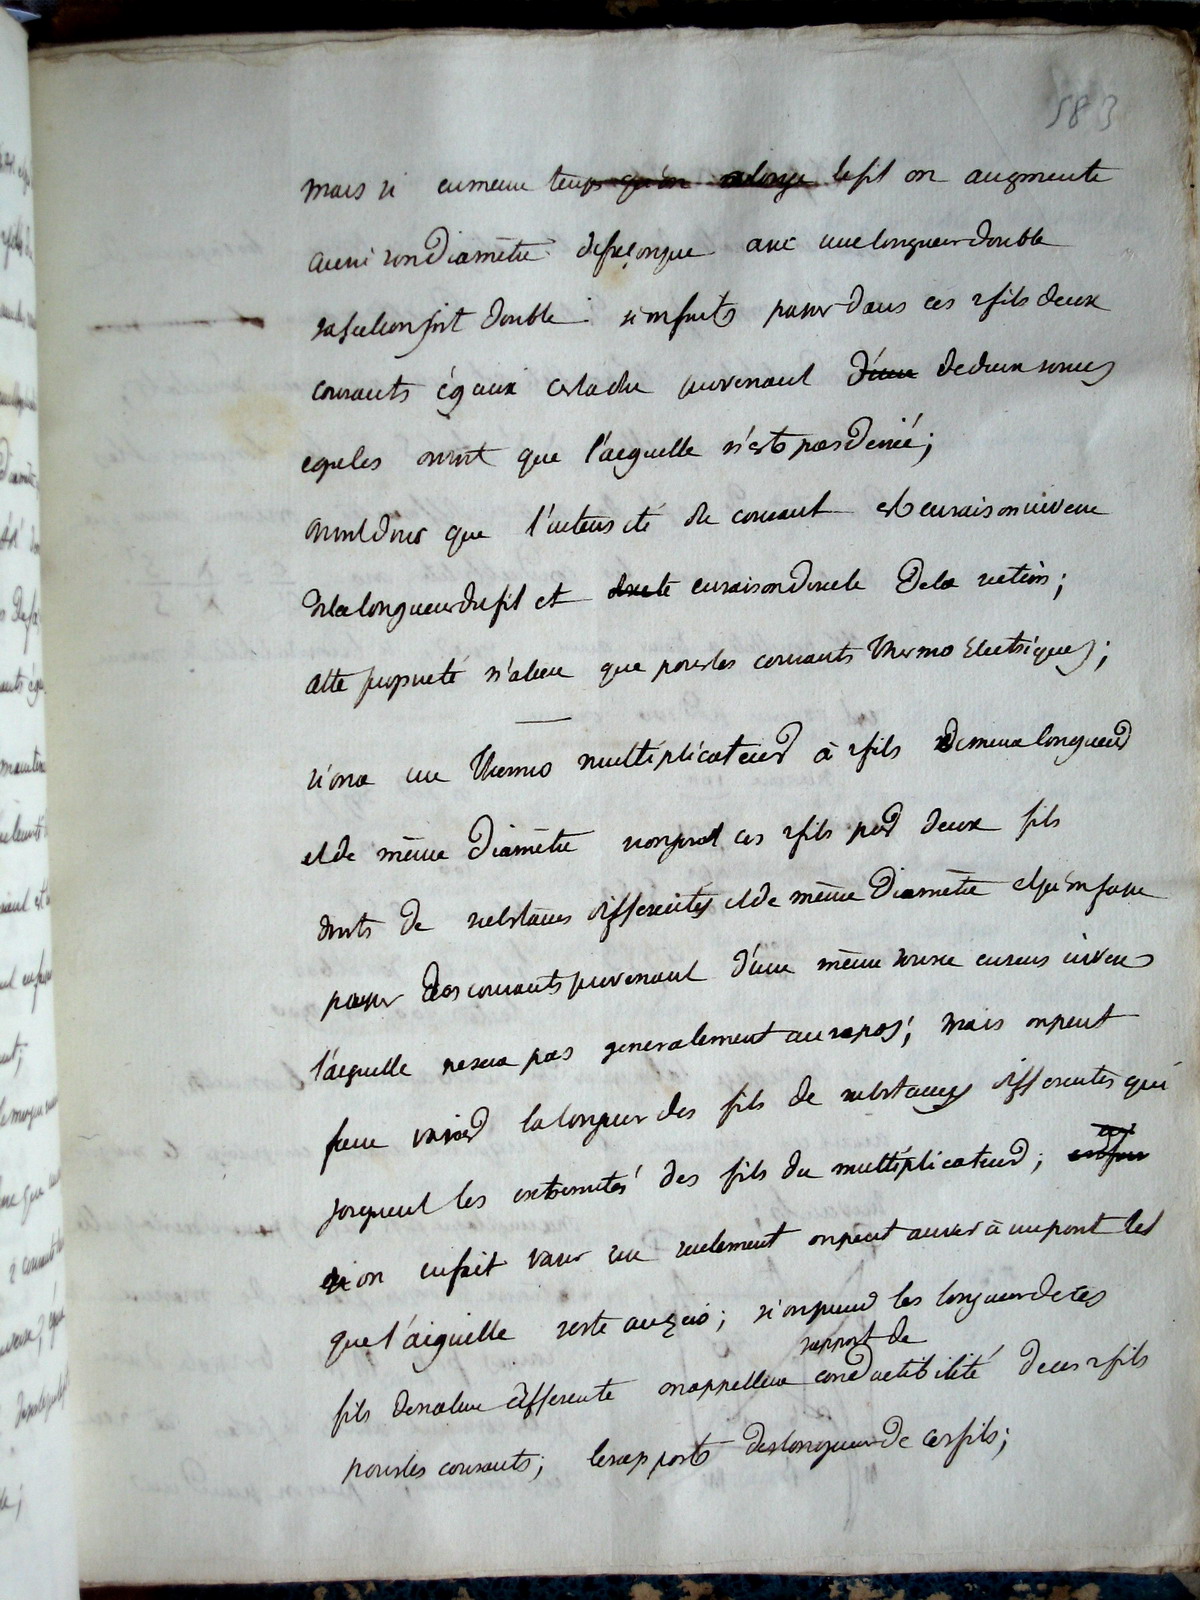 583
mais si en meme temps qu'on alonge le fil on augmente
aussi son diamètre de façon que avec une longueur double
sa section soit double si on fait passer dans ces 2 fils deux
courants égaux cest a dire provenant d'une de deux sources
egales on voit que l'aeguille n'est pas deviée;
on voit donc que l'intensité de courant est en raison inverse
de la longueur du fil et directe en raison directe de la section;
cette propriété n'a lieu que pour les courants thermo electriques;
si on a un thermo multiplicateur à 2 fils de meme longueur
et de même diamètre si on joint ces 2 fils par deux fils
droits de substances differentes et de même diamètre et qu'on fasse
passer des courants provenant d'une même source en sens inverse
l'aeguille ne sera pas generalement au repos; mais on peut
faire varier la longueur des fils de substances differentes qui
joignent les extremités des fils du multiplicateur;
si on en fait varier un seulement on peut arriver à un point tel
que l'aiguille reste au zero; si on prend les longueur de ces
rapport de
fils de nature differente on appellera conductibilité de ces 2 fils
pour les courants; le rapports des longueur de ces fils;